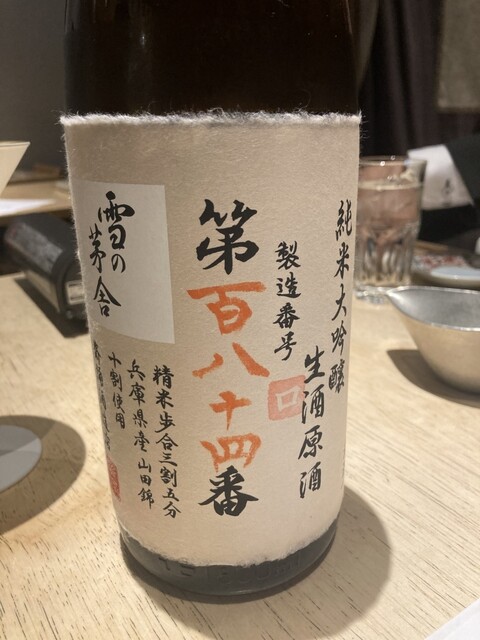 純米大吟醸
生酒原酒
製造番号
第百八十四番
雪の茅舎
精米歩合三割五分
兵庫県産山田錦
十割使用